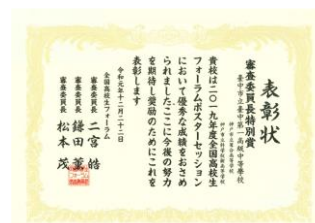 表彰状
審査委員長特別賞
臺中市立臺中第一高級中等學校
貴校は二〇一九年度全国高校生
フォーラムポスターセッション
において優秀な成績をおさめ
られましたここに今後の努力
を期待し奨励のためにこれを
表彰します
令和元年十二月二十二日
全国高校生フォーラム
審査委員長 二宮 皓
審査委員長 鎌田 薫
審査委員長 松本 茂